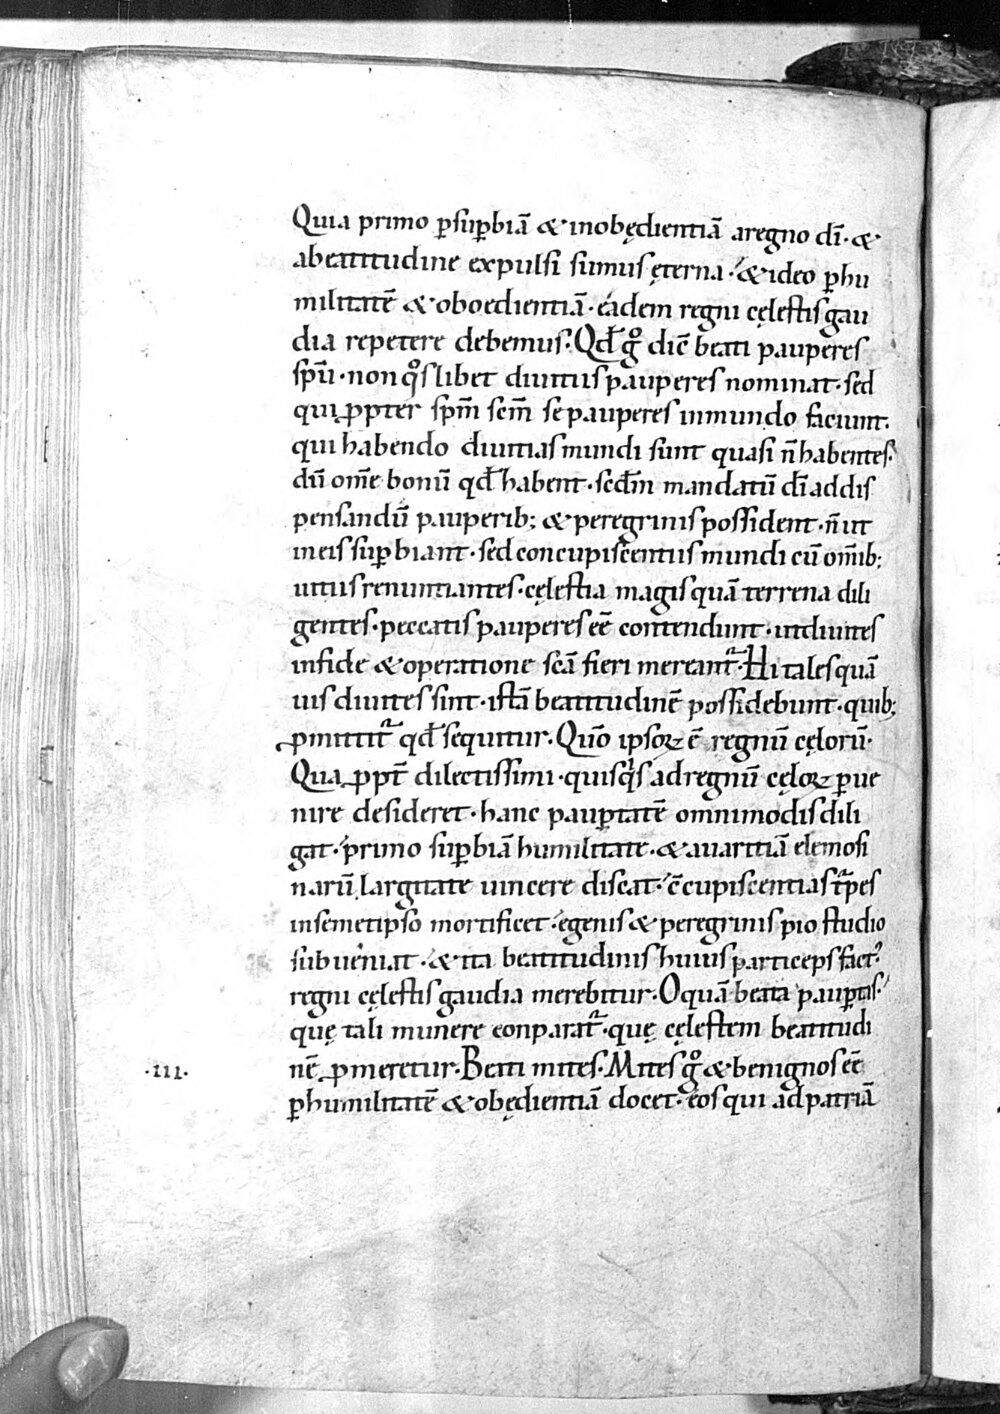 Quia primo ꝑsuꝑbiā & inobędientiā aregno dī· &
abeatitudine expulsi sumus ęterna· & ideo ꝑhu
militatē & oboedientiā· eadem regni cęlestis gau
dia repetere debemus· Qđ gͦ diē beati pauperes
spū· non qͦslibet diuitiis pauperes nominat· sed
qui ꝓpter spm̄ scm̄ se pauperes inmundo faciunt·
qui habendo diuitias mundi sunt quasi n̄ habentes·
dū om̄e bonū qđ habent· secđm mandatū dī addis
pensandū pauperib; & peregrinis possident· n̄ ut
ineis suꝑbiant· sed concupiscentiis mundi cū om̄ib;
uitiis renuntiantes· cęlestia magis quā terrena dili
gentes· peccatis pauperes eē contendunt· ut diuites
infide & operatione scā fieri mereant᷑· Hi tales quā
uis diuites sint· istā beatitudinē possidebunt· quib;
ꝓmittit᷑ qđ sequitur· Quō ipsoꝝ ē regnū cęlorū·
Qua ꝓpt̄ dilectissimi· quisqͥs adregnū cęloꝝ ꝑue
nire desideret· hanc pauꝑtatē omnimodis dili
gat· primo suꝑbiā humilitate· & auaritiā elemosi
narū largitate uincere discat· c̄cupiscentias t̄pes
insemetipso mortificet· egenis & peregrinis pio studio
subueniat· & ita beatitudinis huius particeps fact᷒
regni cęlestis gaudia merebitur· O quā beata pauꝑtas·
quę tali munere conparat᷑· quę cęlestem beatitudi
·III· nē ꝓmeretur· Beati mites· Mites gͦ & benignos eē
ꝑhumilitatē & obędientiā docet· eos qui adpatriā